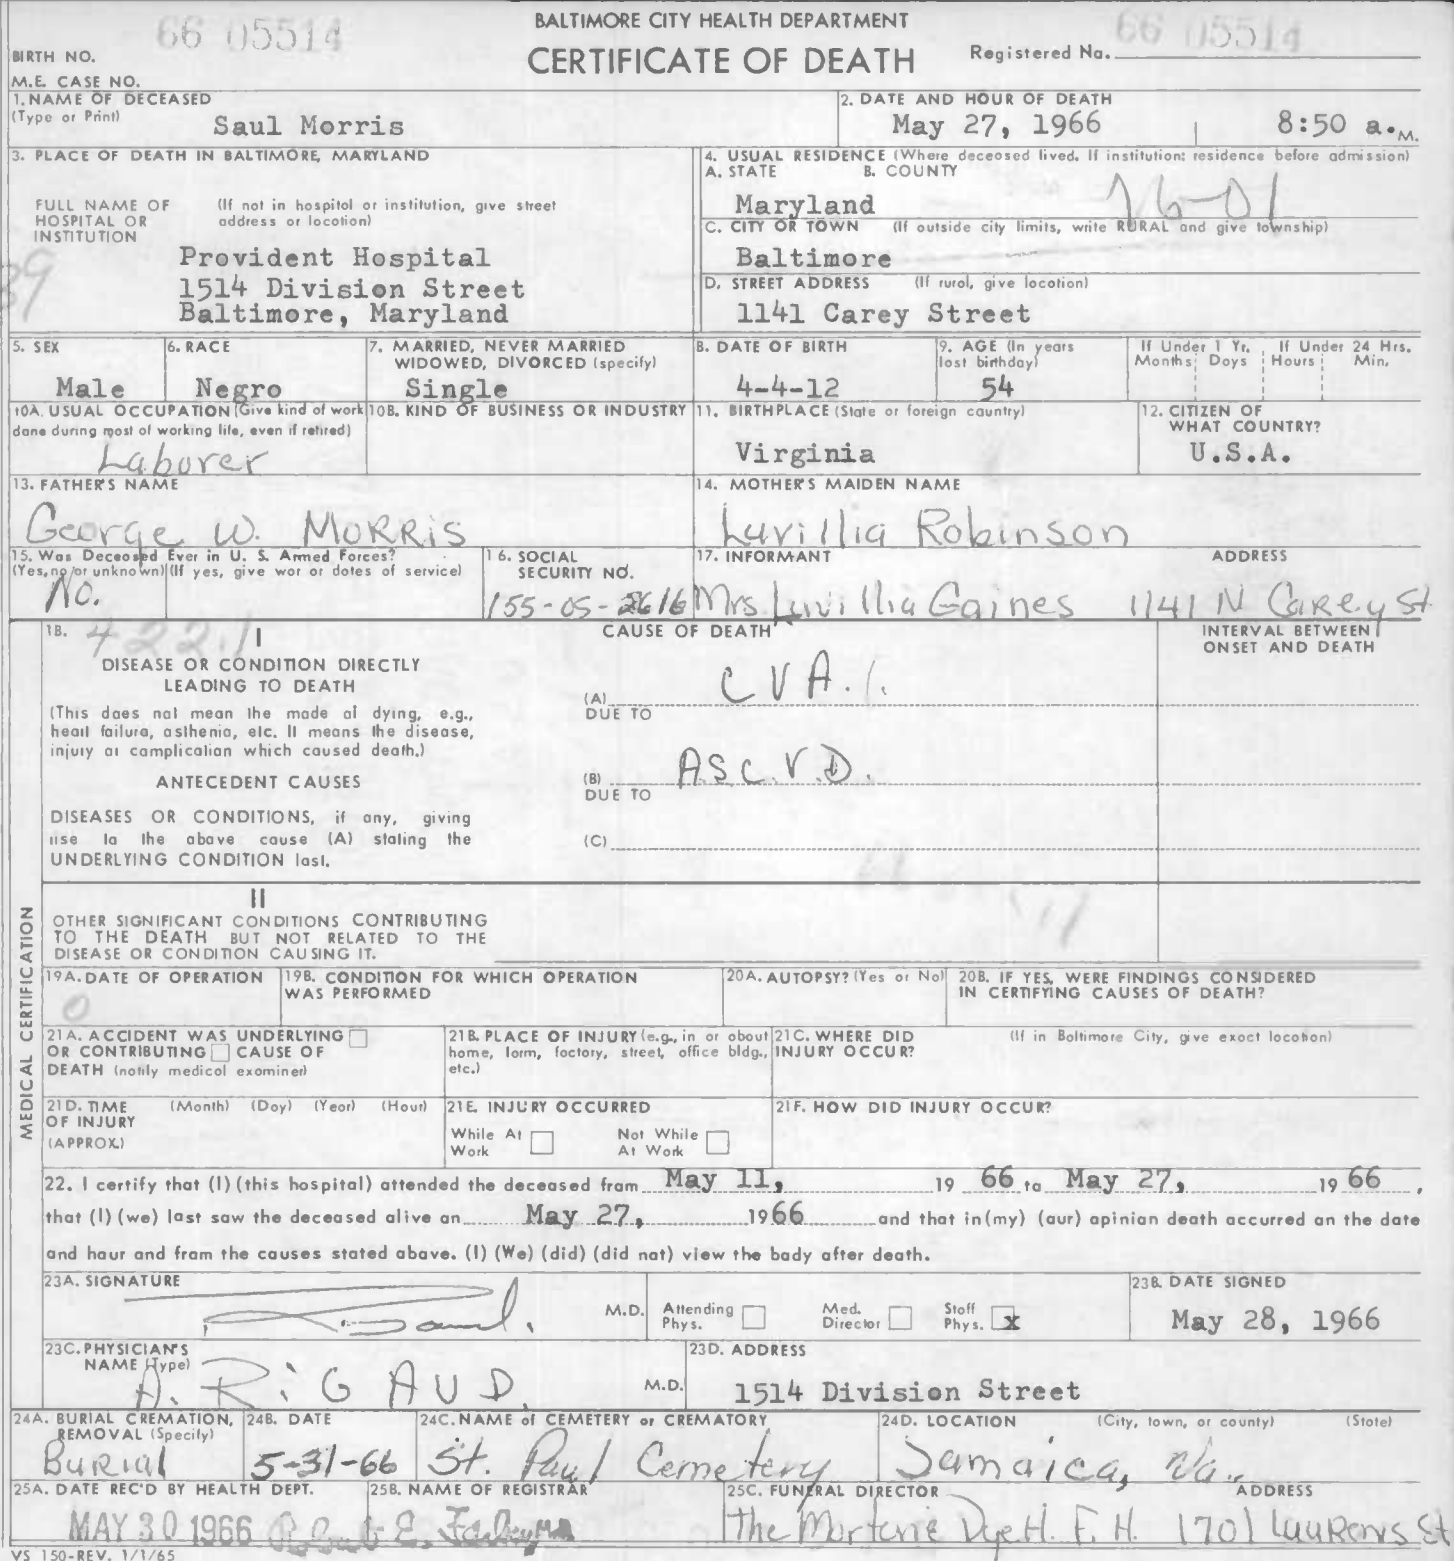 66 05514
BALTIMORE CITY HEALTH DEPARTMENT
66 05514
BIRTH NO.
CERTIFICATE OF DEATH
Registered No.
M.E. CASE NO.
1. NAME OF DECEASED
(Type or Print)
Saul Morris
2. DATE AND HOUR OF DEATH
May 27, 1966 8:50 a.M.
3. PLACE OF DEATH IN BALTIMORE, MARYLAND
FULL NAME OF HOSPITAL OR INSTITUTION
(If not in hospital or institution, give street address or location)
39
Provident Hospital
1514 Division Street
Baltimore, Maryland
4. USUAL RESIDENCE (Where deceased lived. If institution: residence before admission)
A. STATE B. COUNTY
Maryland 16-01
C. CITY OR TOWN (If outside city limits, write RURAL and give township)
Baltimore
D. STREET ADDRESS (If rural, give location)
1141 Carey Street
5. SEX
Male
6. RACE
Negro
7. MARRIED, NEVER MARRIED
WIDOWED, DIVORCED (specify)
Single
8. DATE OF BIRTH
4-4-12
9. AGE (In years
last birthday)
54
If Under 1 Yr.
Months Days
If Under 24 Hrs.
Hours Min.
10A. USUAL OCCUPATION (Give kind of work
done during most of working life, even if retired)
Laborer
10B. KIND OF BUSINESS OR INDUSTRY
11. BIRTHPLACE (State or foreign country)
Virginia
12. CITIZEN OF
WHAT COUNTRY?
U.S.A.
13. FATHER'S NAME
George W. Morris
14. MOTHER'S MAIDEN NAME
Luvillia Robinson
15. Was Deceased Ever in U. S. Armed Forces?
(Yes, no or unknown) (If yes, give war or dates of service)
No.
16. SOCIAL
SECURITY NO.
155-05-2616
17. INFORMANT ADDRESS
Mrs Luvillia Gaines 1141 N Carey St
18. 422.1
I
DISEASE OR CONDITION DIRECTLY
LEADING TO DEATH
(This does not mean the mode of dying, e.g.,
heart failure, asthenia, etc. It means the disease,
injury or complication which caused death.)
ANTECEDENT CAUSES
DISEASES OR CONDITIONS, if any, giving
rise to the above cause (A) stating the
UNDERLYING CONDITION last.
CAUSE OF DEATH
(A) CVA.
DUE TO
(B) A.S.C.V.D.
DUE TO
(C)
INTERVAL BETWEEN
ONSET AND DEATH
II
OTHER SIGNIFICANT CONDITIONS CONTRIBUTING
TO THE DEATH BUT NOT RELATED TO THE
DISEASE OR CONDITION CAUSING IT.
MEDICAL CERTIFICATION
19A. DATE OF OPERATION
0
19B. CONDITION FOR WHICH OPERATION
WAS PERFORMED
20A. AUTOPSY? (Yes or No)
20B. IF YES, WERE FINDINGS CONSIDERED
IN CERTIFYING CAUSES OF DEATH?
21A. ACCIDENT WAS UNDERLYING
OR CONTRIBUTING CAUSE OF
DEATH (notify medical examiner)
21B. PLACE OF INJURY (e.g., in or about
home, farm, factory, street, office bldg.,
etc.)
21C. WHERE DID
INJURY OCCUR?
(If in Baltimore City, give exact location)
21D. TIME (Month) (Day) (Year) (Hour)
OF INJURY
(APPROX.)
21E. INJURY OCCURRED
While At Work
Not While At Work
21F. HOW DID INJURY OCCUR?
22. I certify that (I) (this hospital) attended the deceased from May 11, 19 66 to May 27, 19 66,
that (I) (we) last saw the deceased alive on May 27, 1966 and that in (my) (our) opinion death occurred on the date
and hour and from the causes stated above. (I) (We) (did) (did not) view the body after death.
23A. SIGNATURE
M.D.
Attending Phys.
Med. Director
Staff Phys. x
23B. DATE SIGNED
May 28, 1966
23C. PHYSICIAN'S
NAME (Type)
A. RIGAUD. M.D.
23D. ADDRESS
1514 Division Street
24A. BURIAL CREMATION,
REMOVAL (Specify)
Burial
24B. DATE
5-31-66
24C. NAME of CEMETERY or CREMATORY
St. Paul Cemetery
24D. LOCATION (City, town, or county) (State)
Jamaica, Va.
25A. DATE REC'D BY HEALTH DEPT.
MAY 30 1966
25B. NAME OF REGISTRAR
25C. FUNERAL DIRECTOR ADDRESS
The Dye F. H. 1701 Laurens St
VS 150-REV. 1/1/65